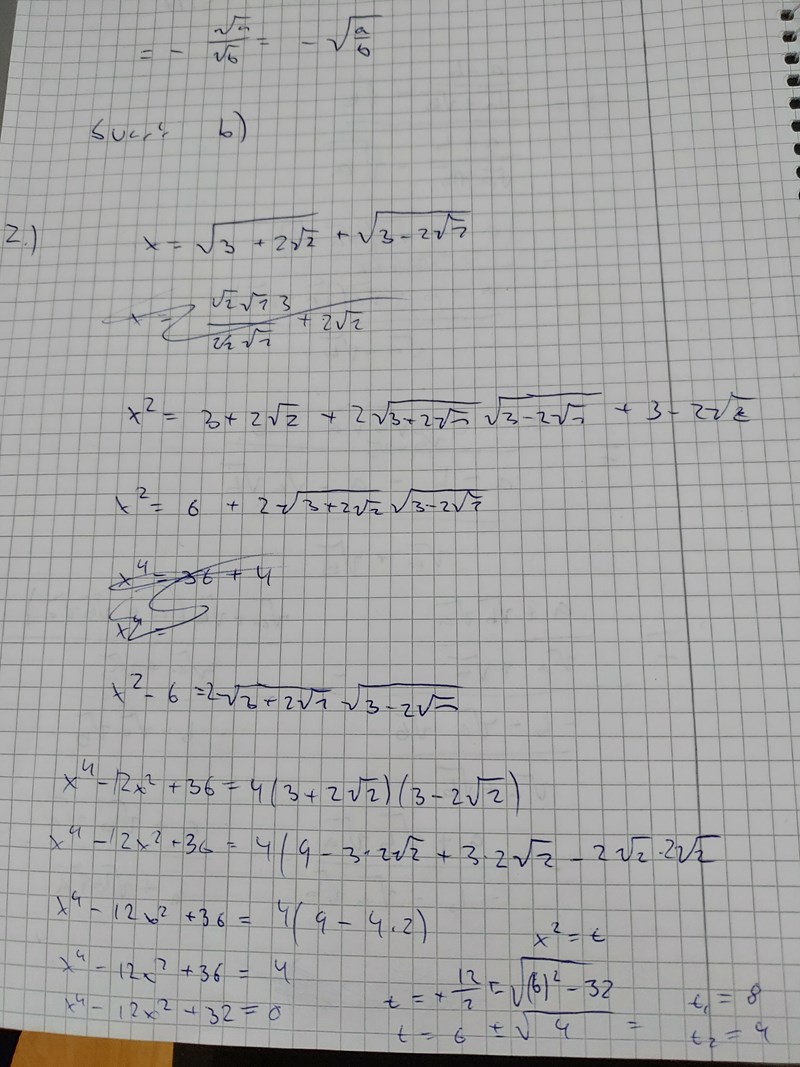 = - √a/√b = - √(a/b)
b)
2.)
x = √(3 + 2√2) + √(3 - 2√2)
x² = 3 + 2√2 + 2√(3+2√2) √(3-2√2) + 3 - 2√2
x² = 6 + 2√(3+2√2) √(3-2√2)
x⁴ = 36 + 4
x⁴ =
x² - 6 = 2√(3+2√2) √(3-2√2)
x⁴ - 12x² + 36 = 4(3+2√2)(3-2√2)
x⁴ - 12x² + 36 = 4(9 - 3·2√2 + 3·2√2 - 2√2·2√2
x⁴ - 12x² + 36 = 4(9 - 4·2)
x⁴ - 12x² + 36 = 4
x⁴ - 12x² + 32 = 0
x² = t
t = + 12/2 ± √((6)² - 32)
t = 6 ± √4 =
t₁ = 8
t₂ = 4